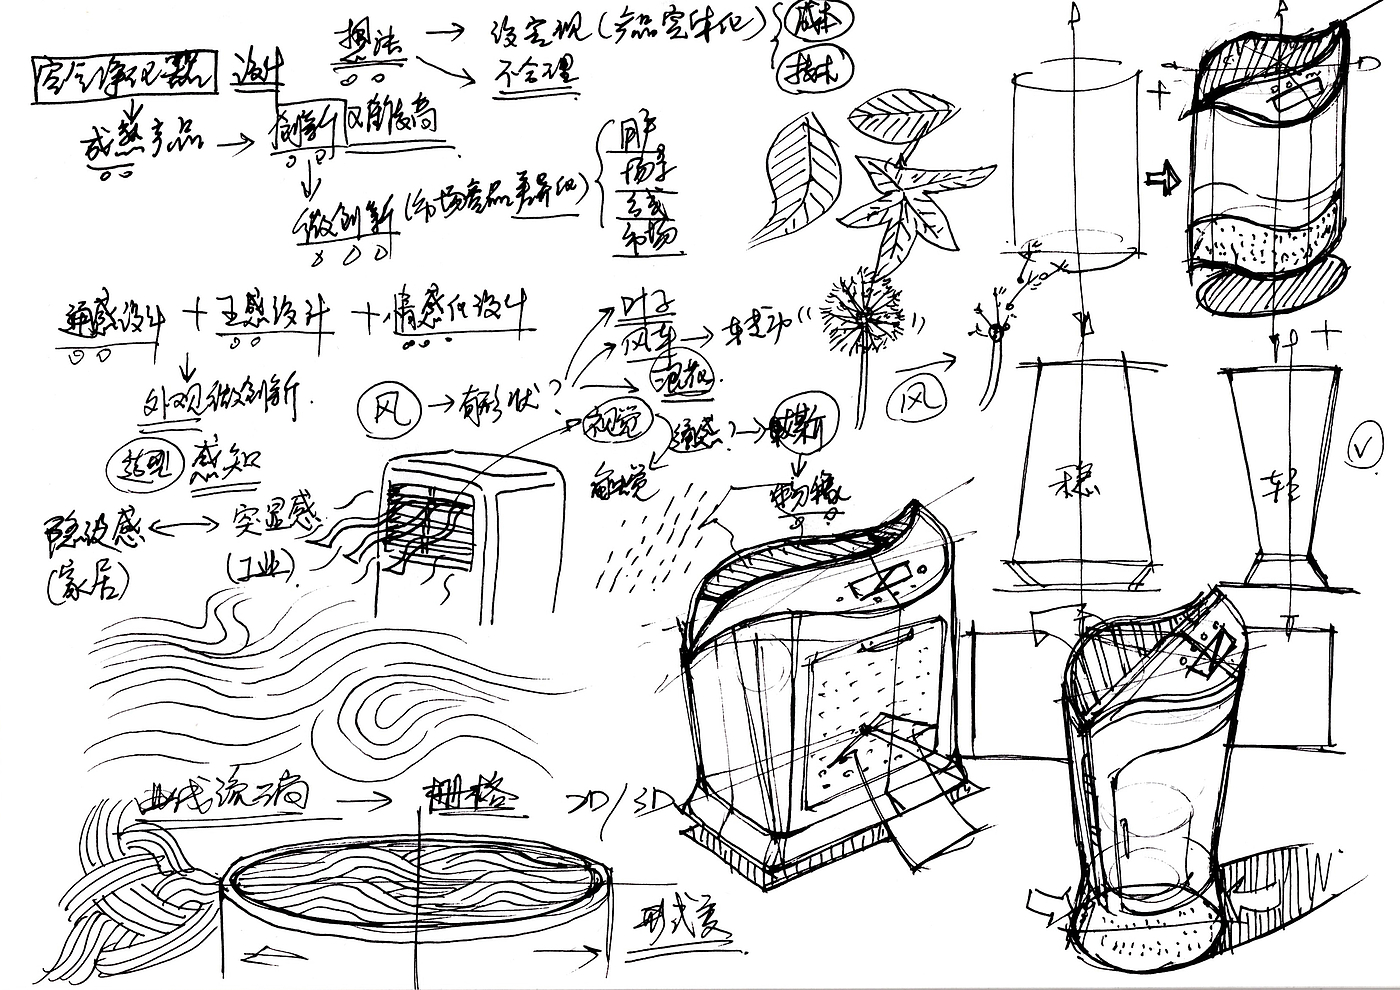 想法 → 没实现(产品实体化){成本
技术
不合理
空气净化器 设计
成熟产品 → 创新 难度高
微创新(市场产品差异化){用户
场景
方式
市场
通感设计 + 五感设计 + 情感化设计
外观微创新
造型 感知
隐没感 ↔ 突显感
(家居) (工业)
风 → 有形状?
叶子
风车 → 转动
视觉 通感? → 媒介
触觉
风
稳
轻 ✓
曲线流动 → 栅格 2D/3D
形式美